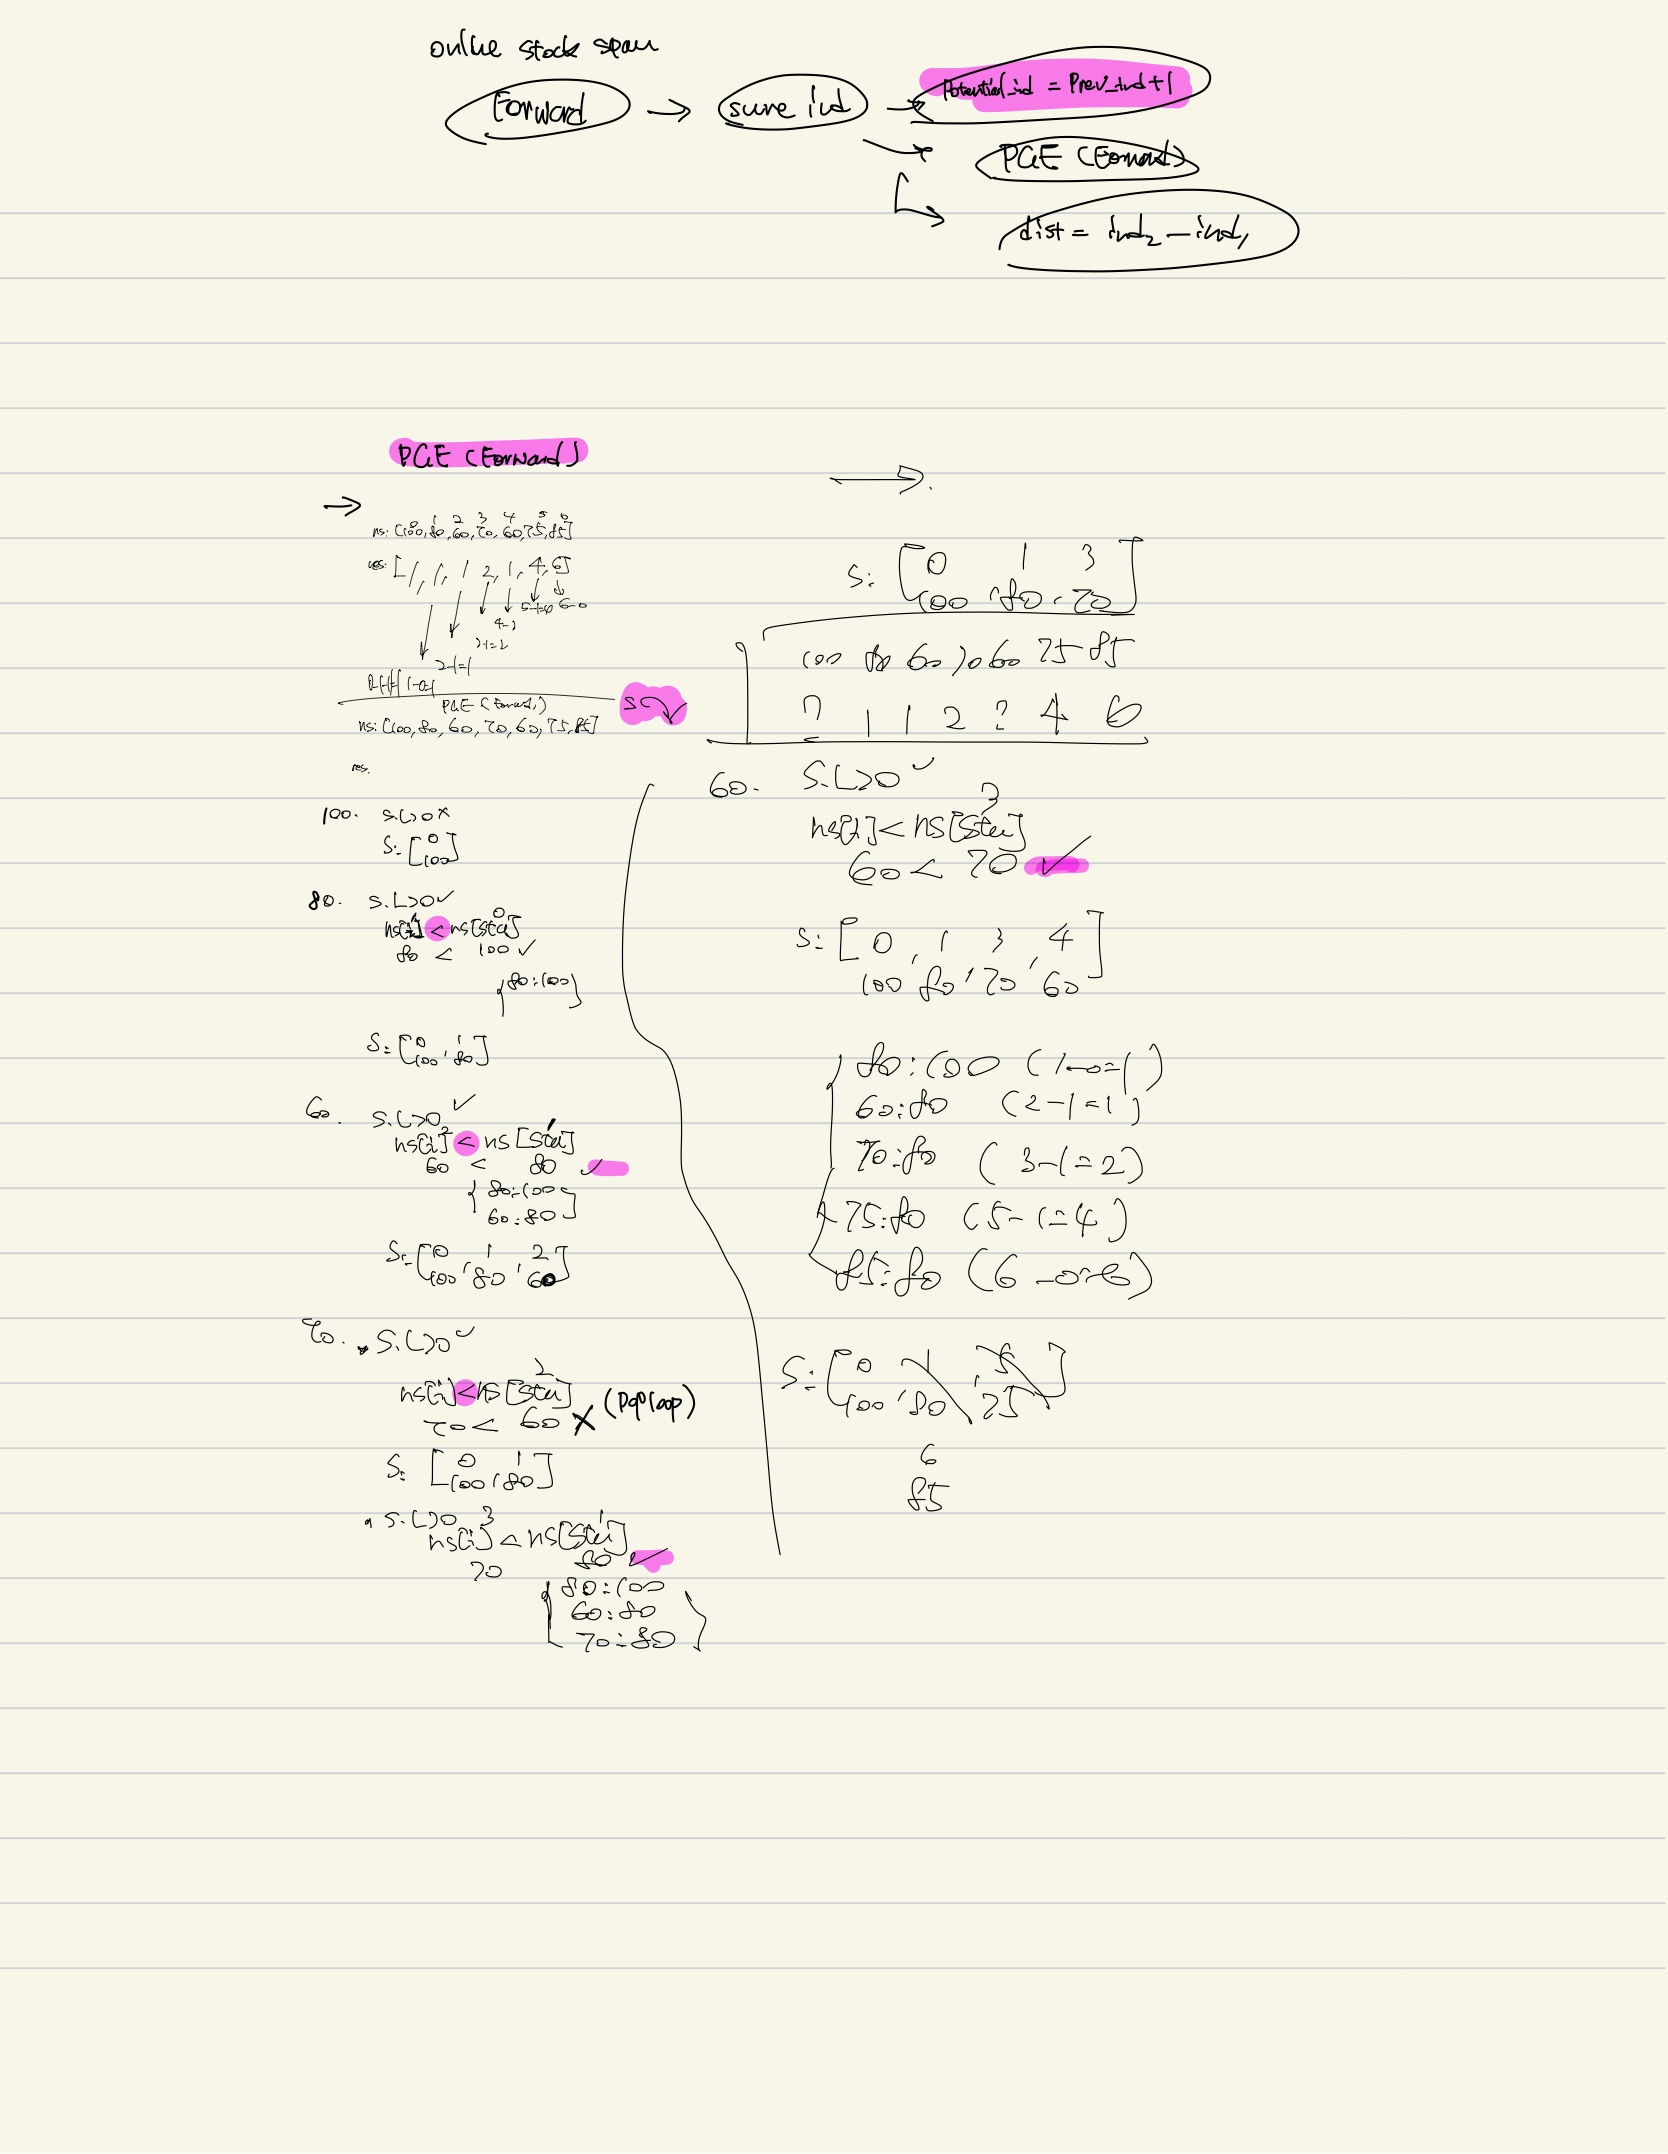 online stock span
Forward → save ind → Potential_ind = Prev_ind+1
PGE (Forward)
dist = ind2 − ind1
PGE (Forward)
→
0 1 2 3 4 5 6
ns: [100, 80, 60, 70, 60, 75, 85]
res: [1, 1, 1, 2, 1, 4, 6]
5-1=4 6-0
4-3
3-1=2
2-1=1
1-0=1
PGE (Forward)
ns: [100, 80, 60, 70, 60, 75, 85]
res.
100. S.L>0 x
S: [0
100]
80. S.L>0 ✓
ns[i] < ns[sta]
80 < 100 ✓
{80:100}
S: [0 1
100, 80]
60. S.L>0 ✓
ns[i] < ns[sta]
60 < 80 ✓
{ 80:100
60:80 }
S: [0 1 2
100, 80, 60]
70. S.L>0 ✓
2
ns[i] < ns[sta]
70 < 60 X (pop loop)
S: [0 1
100, 80]
S.L>0 3 1
ns[i] < ns[sta]
70 80 ✓
{ 80:100
60:80
70:80 }
→
S: [0 1 3
100, 80, 70]
100 80 60 70 60 75 85
? 1 1 2 ? 4 6
60. S.L>0 ✓
3
ns[i] < ns[sta]
60 < 70 ✓
S: [0, 1 3, 4
100, 80, 70, 60]
{ 80:100 (1-0=1)
60:80 (2-1=1)
70:80 (3-1=2)
75:80 (5-1=4)
85:80 (6-0=6)
S: [0 1, 5
100, 80, 75]
6
85